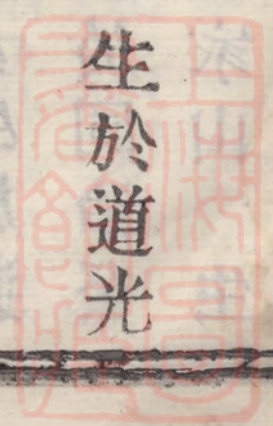 生於道光